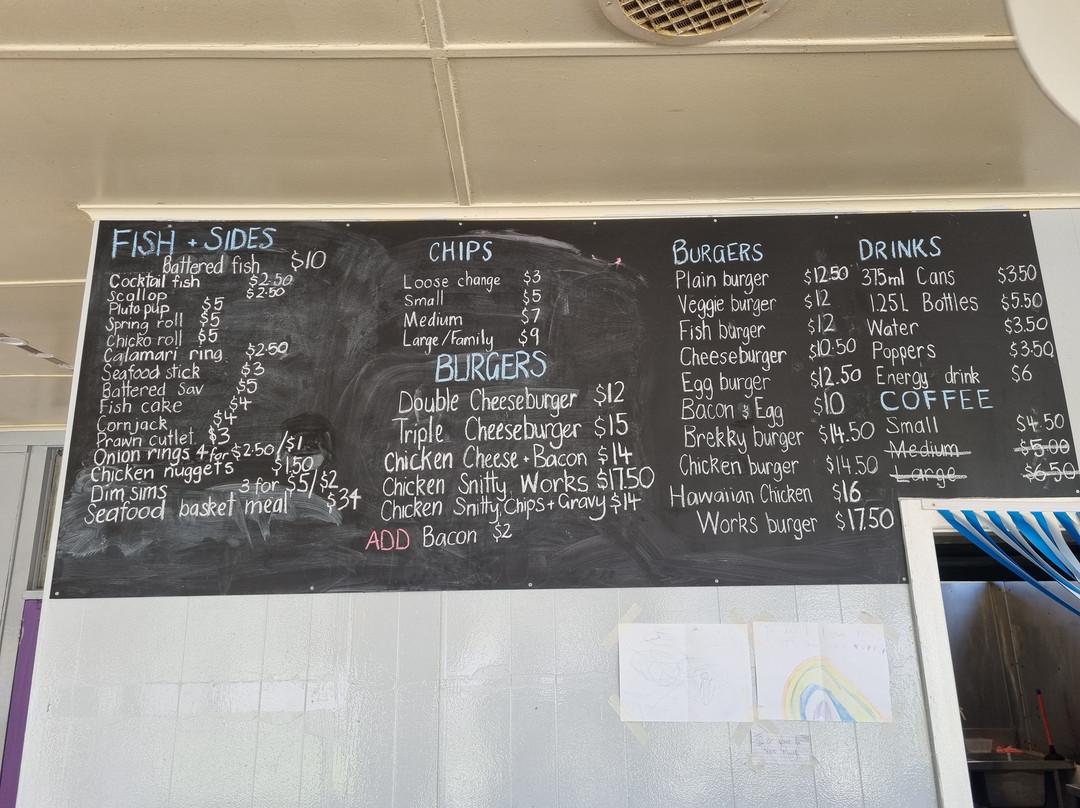 FISH + SIDES
Battered fish $10
Cocktail fish $2.50
Scallop $2.50
Pluto pup $5
Spring roll $5
Chicko roll $5
Calamari ring $2.50
Seafood stick $3
Battered Sav $5
Fish cake $4
Cornjack $4
Prawn cutlet $3
Onion rings 4 for $2.50/$1
Chicken nuggets $1.50
Dim sims 3 for $5/$2
Seafood basket meal $34
CHIPS
Loose change $3
Small $5
Medium $7
Large/Family $9
BURGERS
Double Cheeseburger $12
Triple Cheeseburger $15
Chicken Cheese + Bacon $14
Chicken Snitty Works $17.50
Chicken Snitty, Chips + Gravy $14
ADD Bacon $2
BURGERS
Plain burger $12.50
Veggie burger $12
Fish burger $12
Cheeseburger $10.50
Egg burger $12.50
Bacon & Egg $10
Brekky burger $14.50
Chicken burger $14.50
Hawaiian Chicken $16
Works burger $17.50
DRINKS
375ml Cans $3.50
1.25L Bottles $5.50
Water $3.50
Poppers $3.50
Energy drink $6
COFFEE
Small $4.50
Medium $5.00
Large $6.50